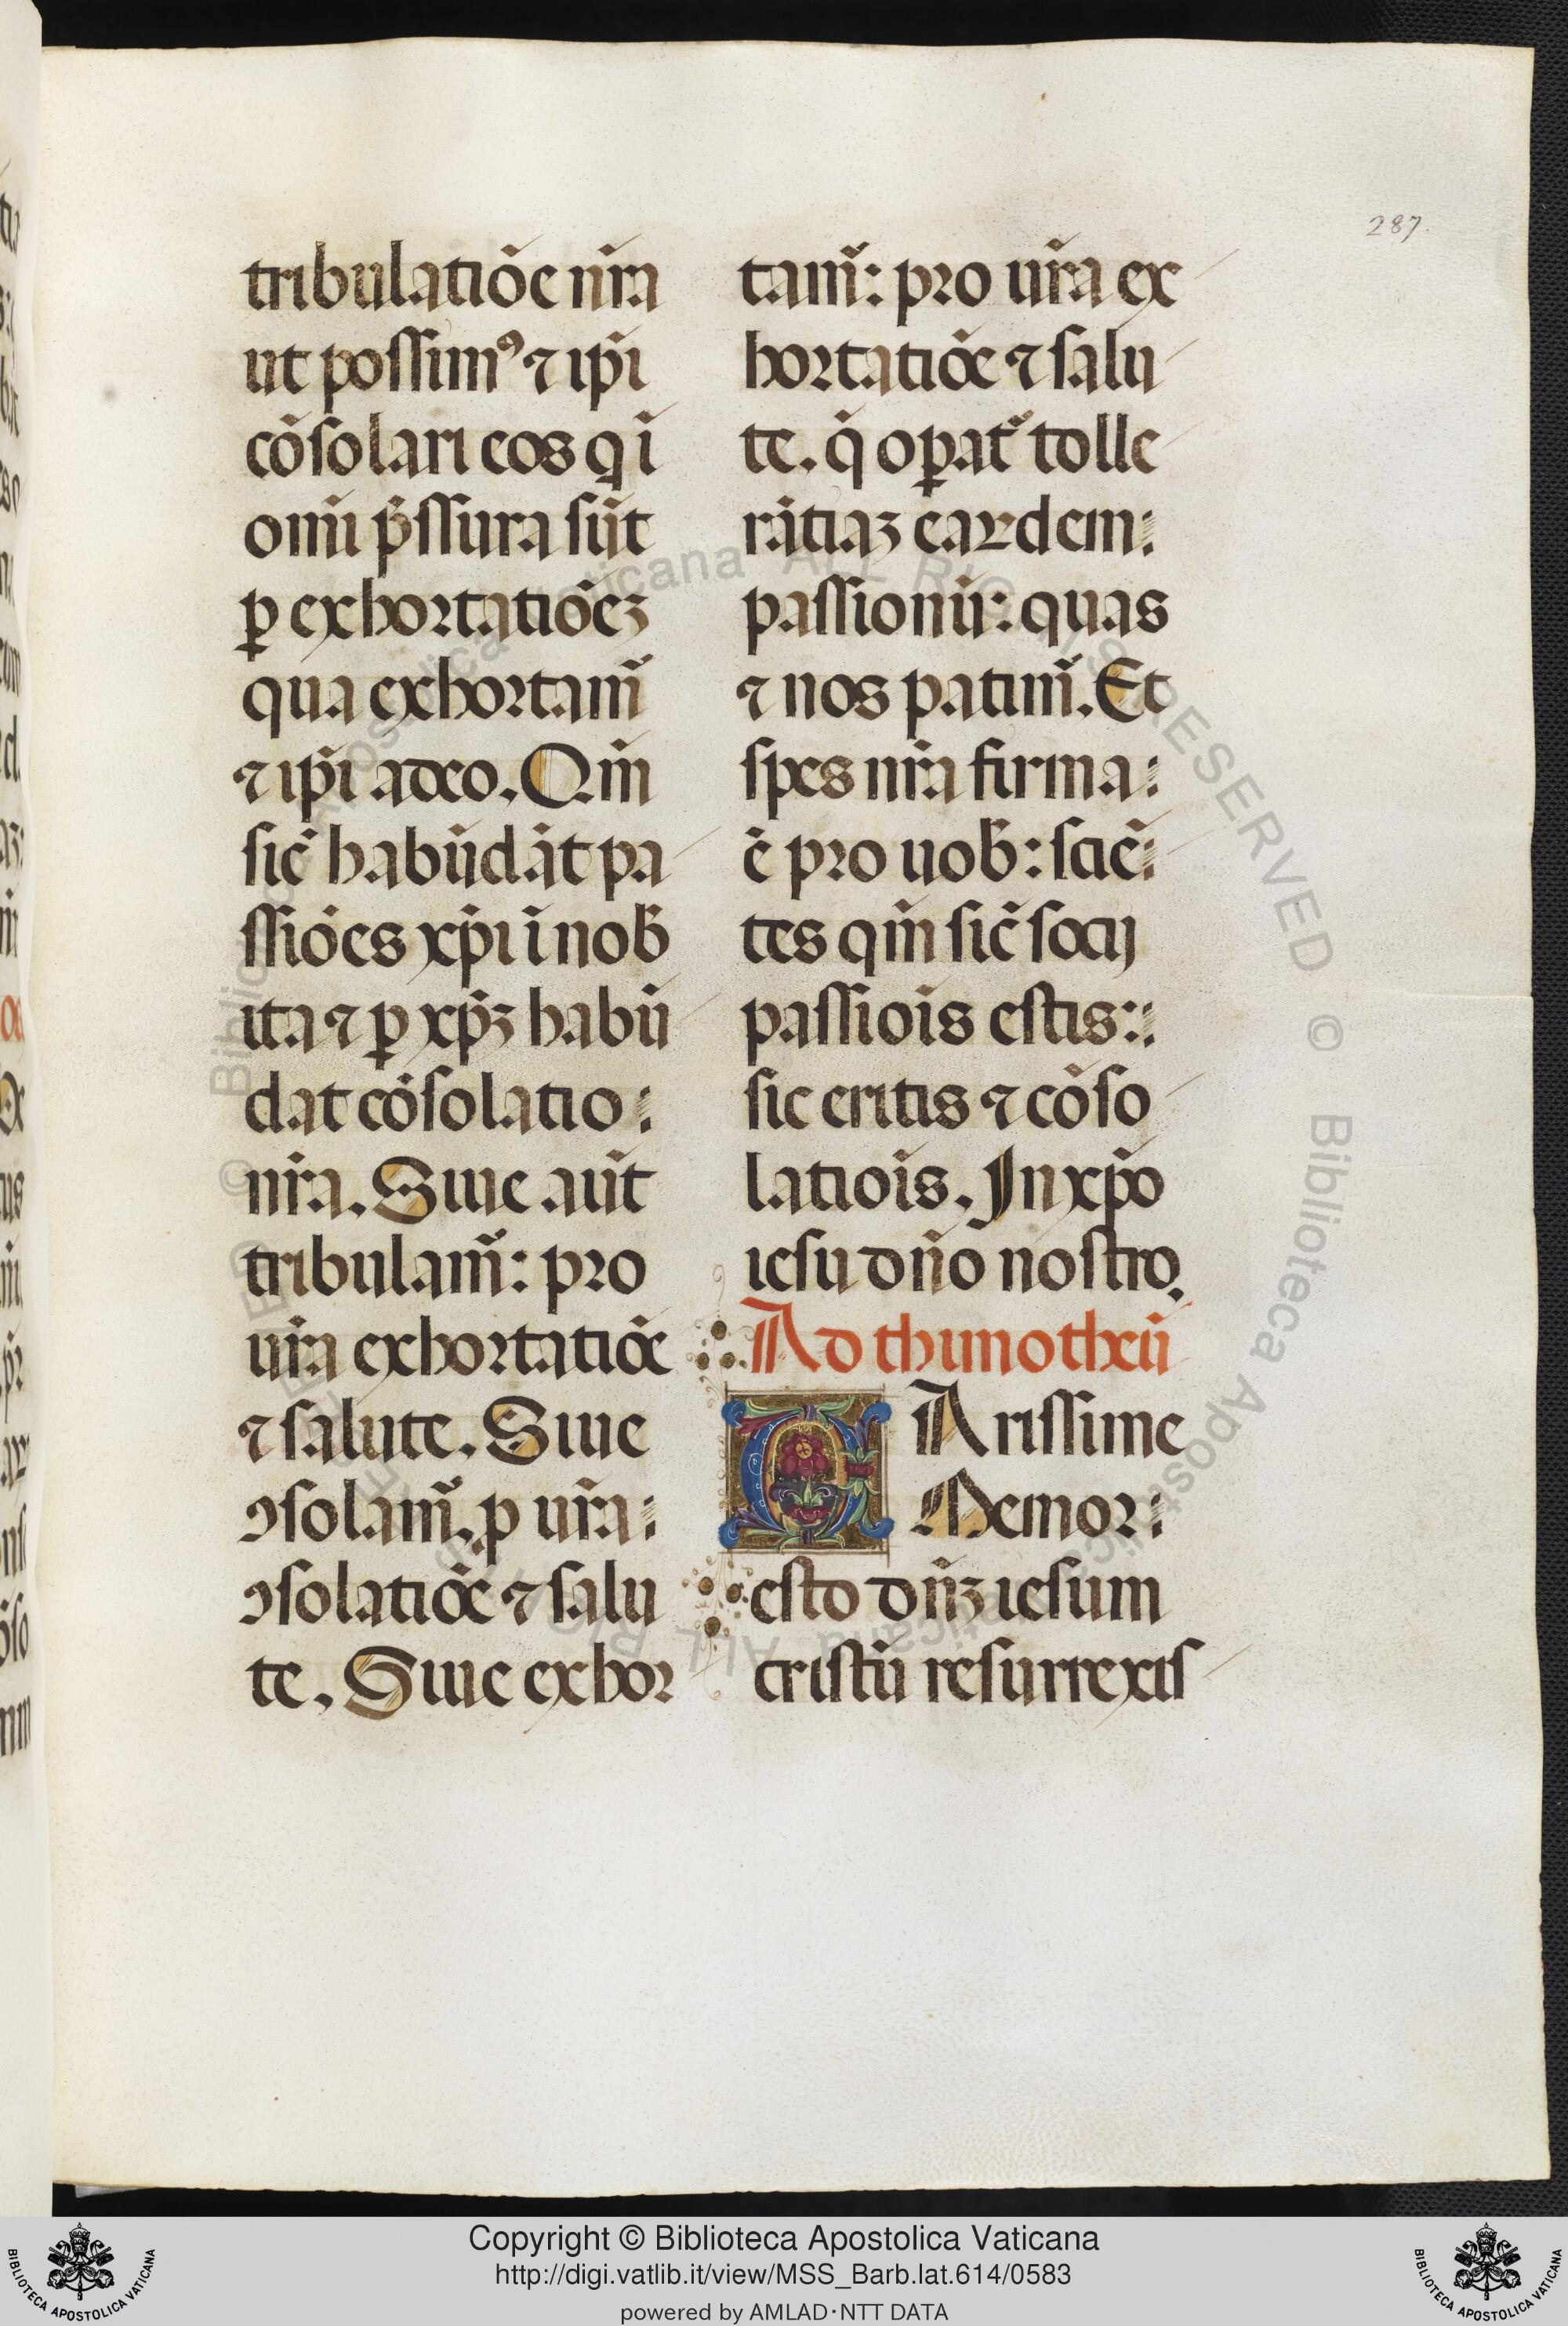 287.
tribulatiōe nr̄a
ut possimꝰ ⁊ ip̄i
cōsolari eos q ī
om̄i p̄ssura sūt
ꝑ exhortatiōeꝫ
qua exhortam̄
⁊ ip̄i a deo. Qm̄
sic̄ habūdāt pa
ssiōes xp̄i ī nob̄
ita ⁊ ꝑ xp̄ꝫ habū
dat cōsolatio:
nr̄a. Siue aūt
tribulam̄: pro
ur̄a exhortatiōe
⁊ salute. Siue
ꝯsolam̄. p ur̄a:
ꝯsolatiōe ⁊ salu
te. Siue exhor
tam̄: pro ur̄a ex
hortatiōe ⁊ salu
te. q̄ oꝑat̄ tolle
rātiaꝫ eardem:
passionū: quas
⁊ nos patim̄. Et
spes nr̄a firma:
ē pro uob̄: sciē:
tes qm̄ sic̄ socij
passiōis estis::
sic eritis ⁊ cōso
latiōis. In xp̄o
iesu dn̄o nostro.
Ad thimotheū
CArissime
Memor:
esto dn̄ꝫ iesum
cristū resurrexis
Copyright © Biblioteca Apostolica Vaticana
http://digi.vatlib.it/view/MSS_Barb.lat.614/0583
powered by AMLAD·NTT DATA
BIBLIOTECA APOSTOLICA VATICANA
BIBLIOTECA APOSTOLICA VATICANA